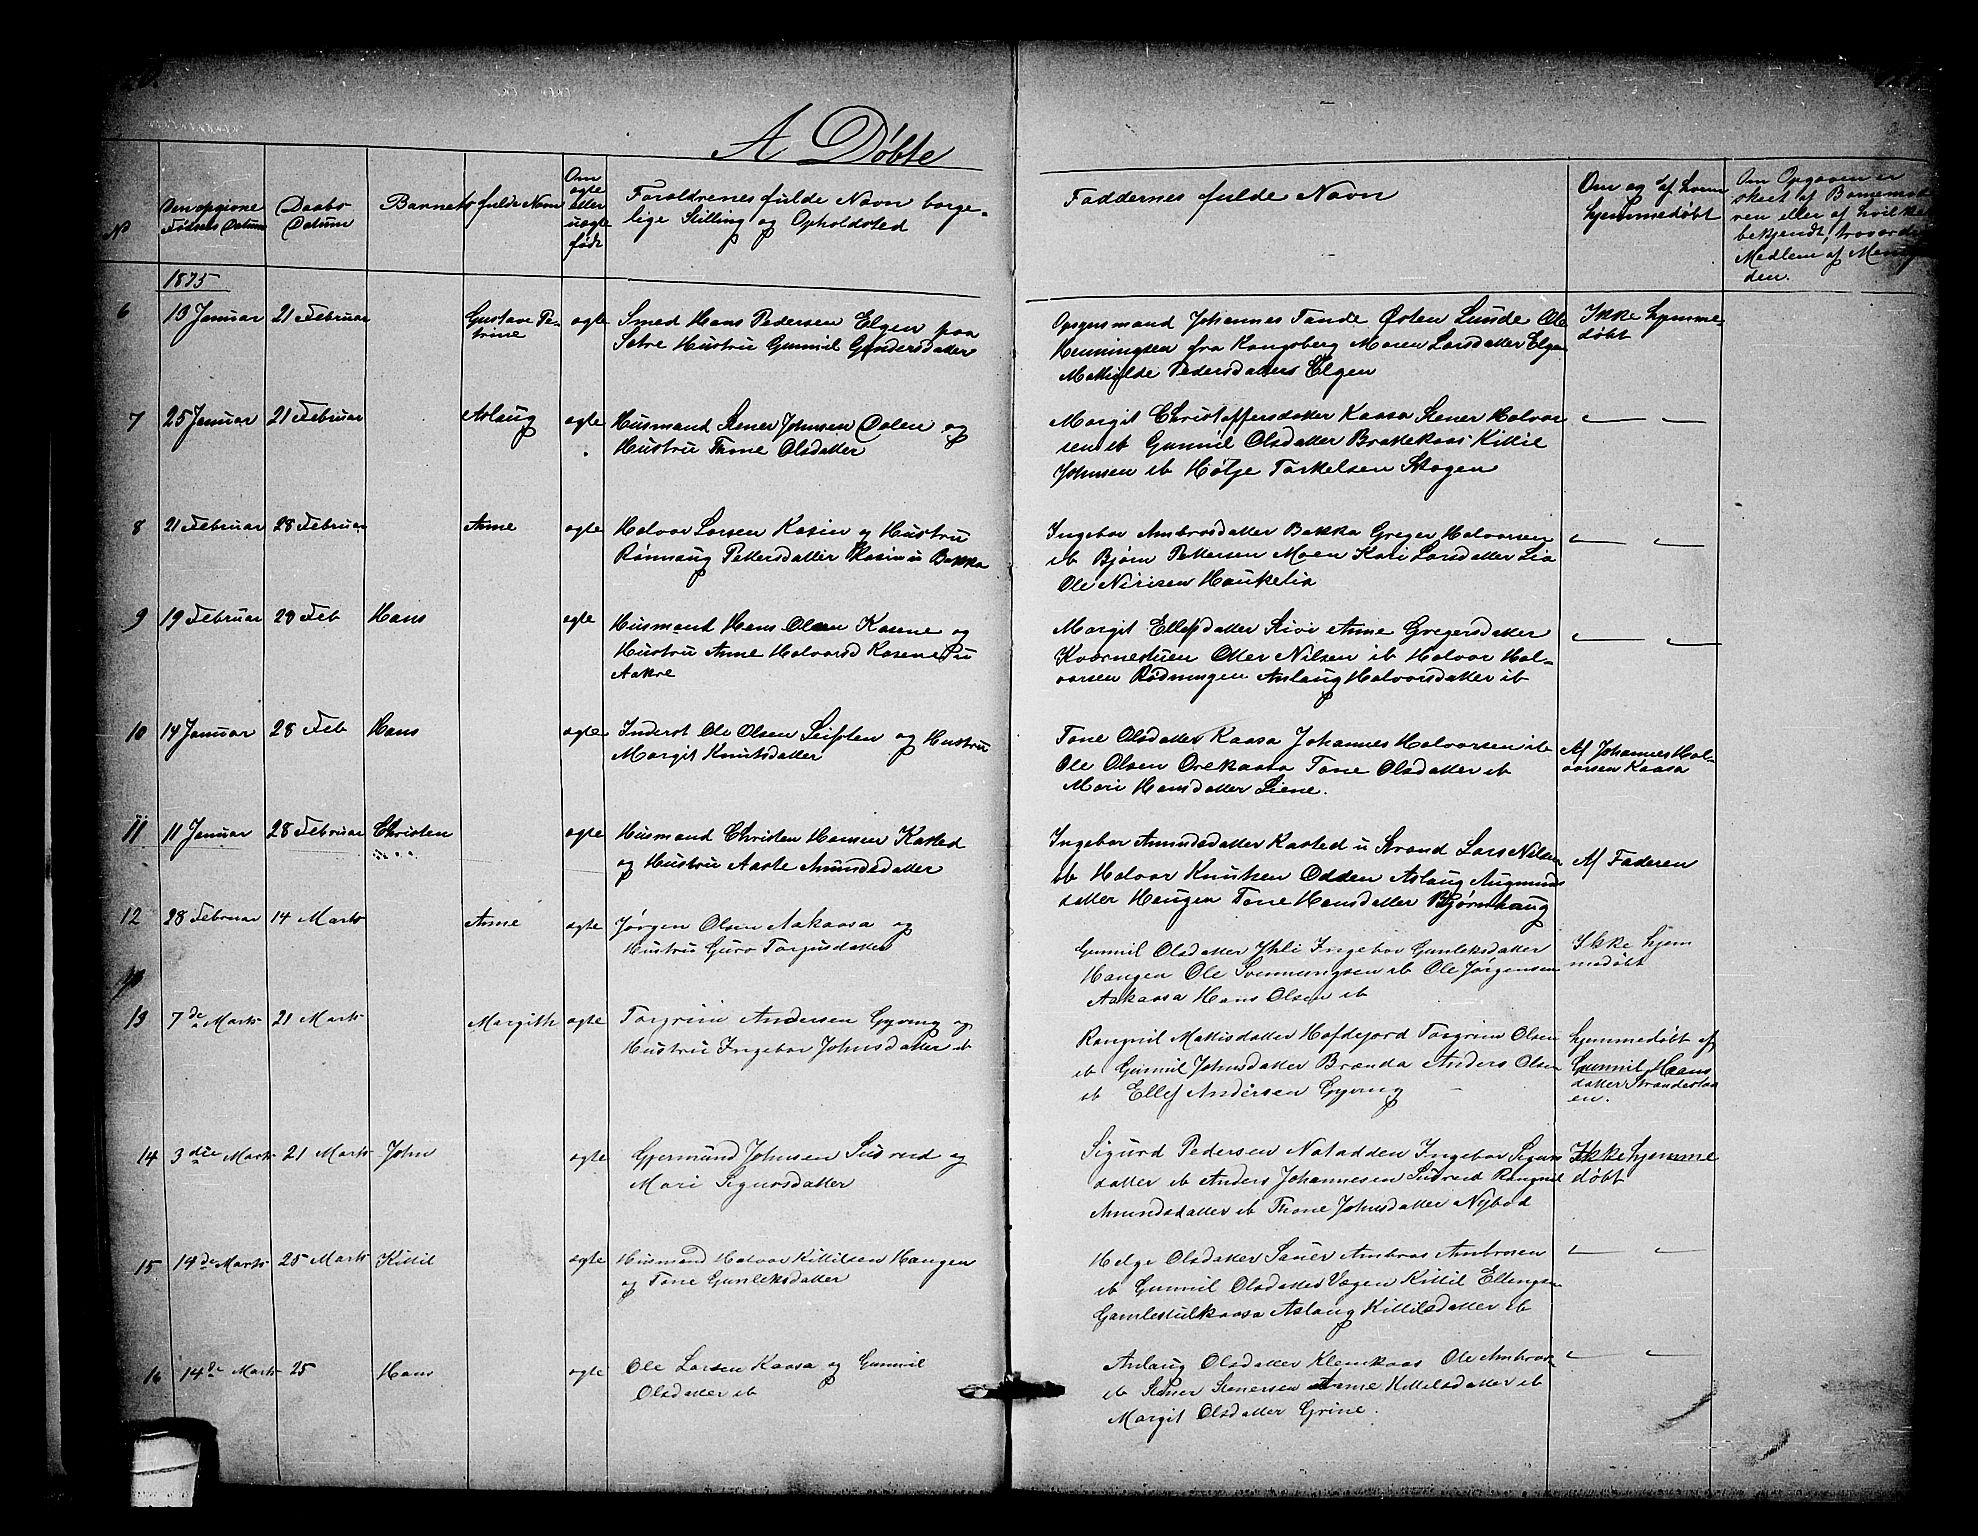 A Døbte
No
Den opgivne Fødsels Datum
Daabs Datum
Barnets fulde Navn
Om ægte eller uægte født
Forældrenes fulde Navn borge-
lige Stilling og Opholdsted
Faddernes fulde Navn
Om og af hvem
hjemmedøbt
Om Opgaven er
skeet af
ren eller af hvilken
bekjendt, troværdig
Medlem af
den.
1875
6 13 Januar 21 Februar Gustave Pe- ægte Smed Hans Pedersen Elgen paa
trine Sætre Hustru Gunnil Gundersdatter
Opsynsmand Johannes Tande Østen Lunde Ole Ikke hjemme-
Henningsen fra Kongsberg Maren Larsdatter Elgen døbt
Mathilde Pedersdatter Elgen
7 25 Januar 21 Februar Aslaug ægte Husmand Stener Johnsen Dalen og
Hustru Thone Olsdatter
Margit Christoffersdatter Kaasa Stener Halvor- — —
sen ib Gunnil Olsdatter Brattekaas Kittil
Johnsen ib Hølje Torkelsen Skogen
8 21 Februar 28 Februar Anne ægte Halvor Larsen Kasin og Hustru
Rønnaug Pettersdatter Kasin u Bakka
Ingebor Ambrosdatter Bakka Greger Halvorsen — —
ib Bjørn Pettersen Moen Kari Larsdatter Lia
Ole Nirisen Haukelia
9 19 Februar 28 Feb Hans ægte Husmand Hans Olsen Kasene og
Hustru Anne Halvorsd Kasene u
Aakre
Margit Ellefsdatter Sivi Anne Gregersdatter — —
Kvernestuen Otter Nilsen ib Halvor Hal-
vorsen Rødningen Anlaug Halvorsdatter ib
10 14 Januar 28 Feb Hans ægte Inderst Ole Olsen Leiflen og Hustru
Margit Knutsdatter
Tone Olsdatter Kaasa Johannes Halvorsen ib Af Johannes Hal-
Ole Olsen Orekaasa Tone Olsdatter ib vorsen Kaasa
Mari Hansdatter Liene.
11 11 Januar 28 Februar Christen ægte Husmand Christen Hansen Kasted
og Hustru Aaste Amundsdatter
Ingebor Amundsdatter Kasted u Strand Lars Nilsen Af Faderen
ib Halvor Knutsen Odden Aslaug Augmunds
datter Haugen Tone Hansdatter Bjørnhaug
12 28 Februar 14 Marts Anne ægte Jørgen Olsen Aakaasa og
Hustru Guro Torgusdatter
Gunnil Olsdatter Jhli Ingebor Gunleksdatter Ikke hjem
Haugen Ole Svennungsen ib Ole Jørgensen medøbt
Aakaasa Hans Olsen ib
13 7de Marts 21 Marts Margith ægte Torgrim Andersen Gyving og
Hustru Ingebor Johnsdatter ib
Rangnil Mathisdatter Hofdejord Torgrim Olsen hjemmedøbt af
ib Gunnil Johnsdatter Brænda Anders Olsen Gunnil Hans
ib Ellef Andersen Gyving datter Strandestad
en.
14 3die Marts 21 Marts John ægte Gjermund Johnsen Sudreid og
Mari Sigursdatter
Sigurd Pedersen Notodden Ingebor Sigurs Ikke hjemme
datter ib Anders Johannesen Sudreid Rangnil døbt
Amundsdatter ib Thone Johnsdatter Nybod
15 14de Marts 25 Marts Kittil ægte Husmand Halvor Kittilsen Haugen
og Tone Gunleksdatter
Helge Olsdatter Sauer Ambros Ambrosen — —
ib Gunnil Olsdatter Vægen Kittil Ellengsen
Gamlestulkaasa Aslaug Kittilsdatter ib
16 14de Marts 25 Hans ægte Ole Larsen Kaasa og Gunnil
Olsdatter ib
Anlaug Olsdatter Klemkaas Ole Ambros- — —
ib Stener Stenersen Anne Kittilsdatter ib
Margit Olsdatter Grine.